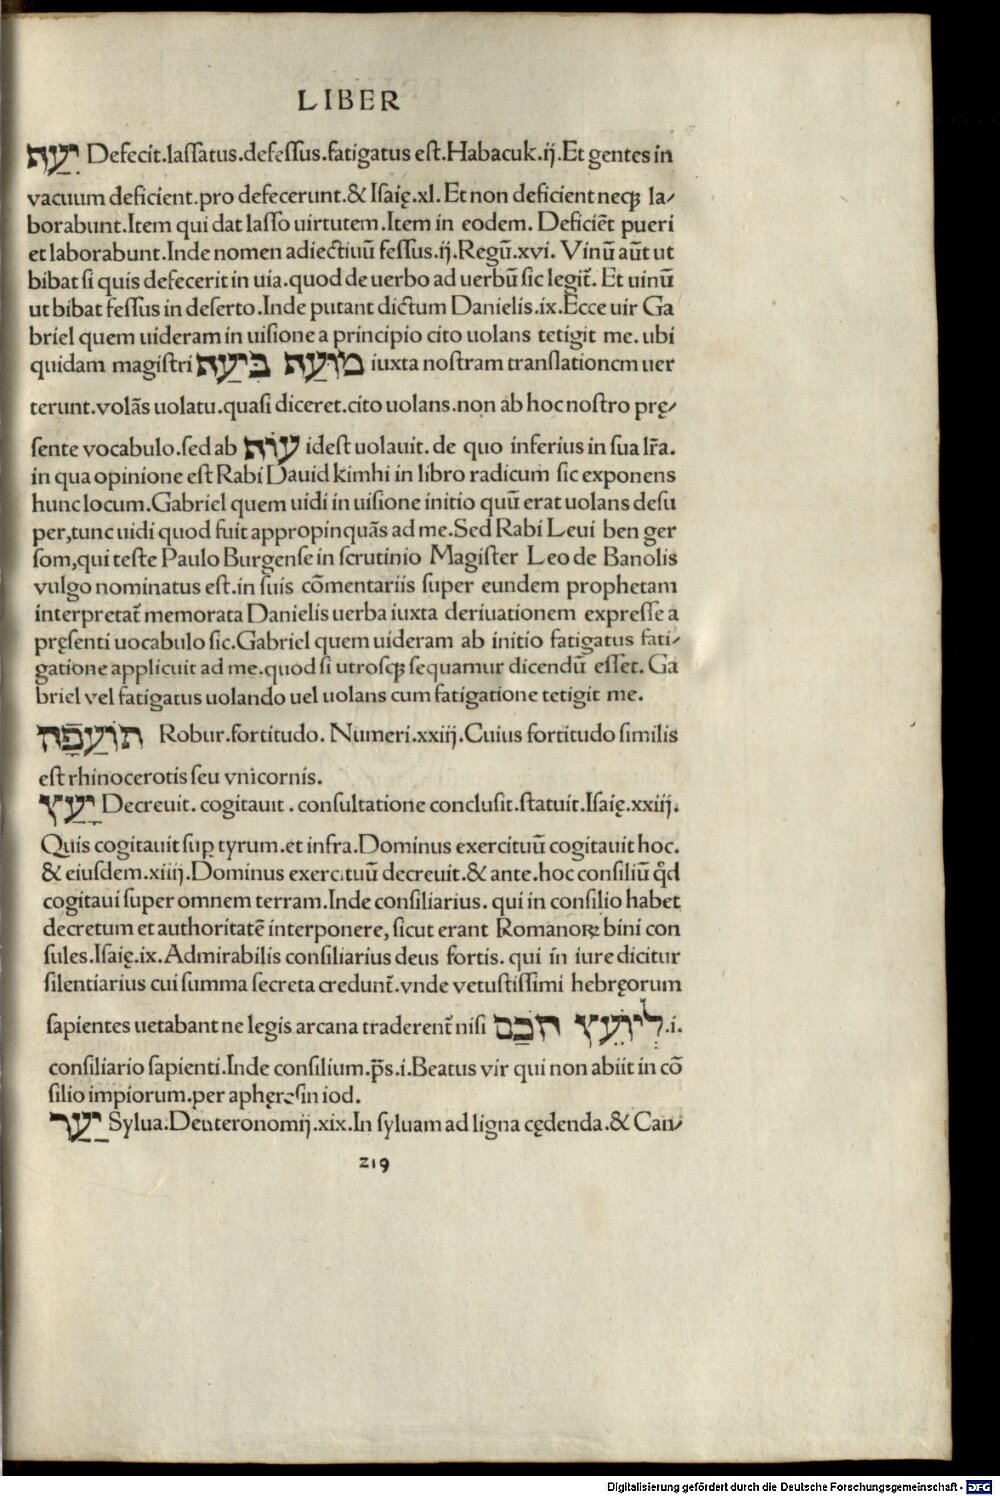 LIBER
יָעַף Defecit.laſſatus.defeſſus.fatigatus eſt.Habacuk.ij.Et gentes in
vacuum deficient.pro defecerunt.& Iſaię.xl.Et non deficient neqꝫ la⸗
borabunt.Item qui dat laſſo uirtutem.Item in eodem. Deficiēt pueri
et laborabunt.Inde nomen adiectiuū feſſus.ij.Regū.xvi. Vinū aūt ut
bibat ſi quis defecerit in uia.quod de uerbo ad uerbū ſic legit̄. Et uinū
ut bibat feſſus in deſerto.Inde putant dictum Danielis.ix.Ecce uir Ga
briel quem uideram in uiſione a principio cito uolans tetigit me. ubi
quidam magiſtri מוּעַף בִּיעַף iuxta noſtram translationem uer
terunt.volās uolatu.quaſi diceret.cito uolans.non ab hoc noſtro prę⸗
ſente vocabulo.ſed ab עוֹף ideſt uolauit. de quo inferius in ſua lr̄a.
in qua opinione eſt Rabi Dauid kimhi in libro radicum ſic exponens
hunc locum.Gabriel quem uidi in uiſione initio quū erat uolans deſu
per,tunc uidi quod fuit appropinquās ad me.Sed Rabi Leui ben ger
ſom,qui teſte Paulo Burgenſe in ſcrutinio Magiſter Leo de Banolis
vulgo nominatus eſt.in ſuis cōmentariis ſuper eundem prophetam
interpretat̄ memorata Danielis uerba iuxta deriuationem expreſſe a
pręſenti uocabulo ſic.Gabriel quem uideram ab initio fatigatus fati⸗
gatione applicuit ad me.quod ſi utroſqꝫ ſequamur dicendū eſſet. Ga
briel vel fatigatus uolando uel uolans cum fatigatione tetigit me.
תוֹעַפָה Robur.fortitudo. Numeri.xxiij.Cuius fortitudo ſimilis
eſt rhinocerotis ſeu vnicornis.
יָעַץ Decreuit. cogitauit . conſultatione concluſit.ſtatuit.Iſaię.xxiij.
Quis cogitauit ſuꝑ tyrum.et infra.Dominus exercituū cogitauit hoc.
& eiuſdem.xiiij.Dominus exercituū decreuit.& ante.hoc conſiliū qd̄
cogitaui ſuper omnem terram.Inde conſiliarius. qui in conſilio habet
decretum et authoritatē interponere, ſicut erant Romanoꝝ bini con
ſules.Iſaię.ix.Admirabilis conſiliarius deus fortis. qui in iure dicitur
ſilentiarius cui ſumma ſecreta credunt̄.vnde vetuſtiſſimi hebręorum
ſapientes uetabant ne legis arcana traderent̄ niſi לְיוֹעֵץ חָכַם .i.
conſiliario ſapienti.Inde conſilium.p̄s.i.Beatus vir qui non abiit in cō
ſilio impiorum.per aphęreſin iod.
יַעַר Sylua.Deuteronomij.xix.In ſyluam ad ligna cędenda.& Can⸗
219
Digitalisierung gefördert durch die Deutsche Forschungsgemeinschaft - DFG